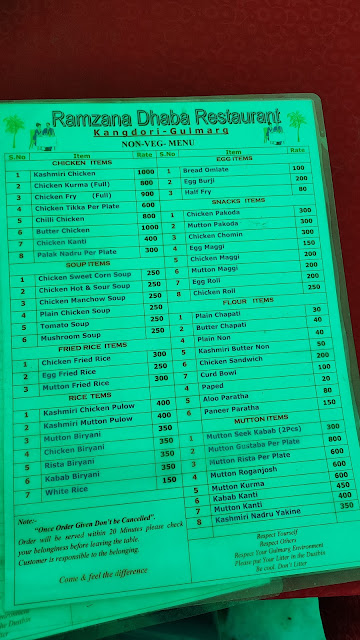 Ramzana Dhaba Restaurant
Kangdori-Gulmarg
NON-VEG- MENU
S.No Item Rate
CHICKEN ITEMS
1 Kashmiri Chicken 1000
2 Chicken Kurma (Full) 800
3 Chicken Fry (Full) 900
4 Chicken Tikka Per Plate 600
5 Chilli Chicken 800
6 Butter Chicken 1000
7 Chicken Kanti 400
8 Palak Nadru Per Plate 300
SOUP ITEMS
1 Chicken Sweet Corn Soup 250
2 Chicken Hot & Sour Soup 250
3 Chicken Manchow Soup 250
4 Plain Chicken Soup 250
5 Tomato Soup 250
6 Mushroom Soup 250
FRIED RICE ITEMS
1 Chicken Fried Rice 300
2 Egg Fried Rice 250
3 Mutton Fried Rice 300
RICE TEMS
1 Kashmiri Chicken Pulow 400
2 Kashmiri Mutton Pulow 400
3 Mutton Biryani 350
4 Chicken Biryani 350
5 Rista Biryani 350
6 Kabab Biryani 350
7 White Rice 150
Note:-
"Once Order Given Don't be Cancelled".
Order will be served within 20 Minutes please check
your belonginess before leaving the table.
Customer is responsible to the belonging.
Come & feel the difference
S.No Item Rate
EGG ITEMS
1 Bread Omlate 100
2 Egg Burji 200
3 Half Fry 80
SNACKS ITEMS
1 Chicken Pakoda 300
2 Mutton Pakoda 300
3 Chicken Chomin 300
4 Egg Maggi 150
5 Chicken Maggi 200
6 Mutton Maggi 200
7 Egg Roll 200
8 Chicken Roll 250
FLOUR ITEMS
1 Plain Chapati 30
2 Butter Chapati 40
4 Plain Non 40
5 Kashmiri Butter Non 50
6 Chicken Sandwich 200
7 Curd Bowl 100
4 Paped 20
5 Aloo Paratha 80
6 Paneer Paratha 150
MUTTON ITEMS
1 Mutton Seek Kabab (2Pcs) 300
2 Mutton Gustaba Per Plate 800
3 Mutton Rista Per Plate 600
4 Mutton Roganjosh 600
5 Mutton Kurma 600
6 Kabab Kanti 450
7 Mutton Kanti 400
8 Kashmiri Nadru Yakine 350
Respect Yourself
Respect Others
Respect Your Gulmarg Environment
Please Put your Litter in the Dustbin
Be cool Don't Litter